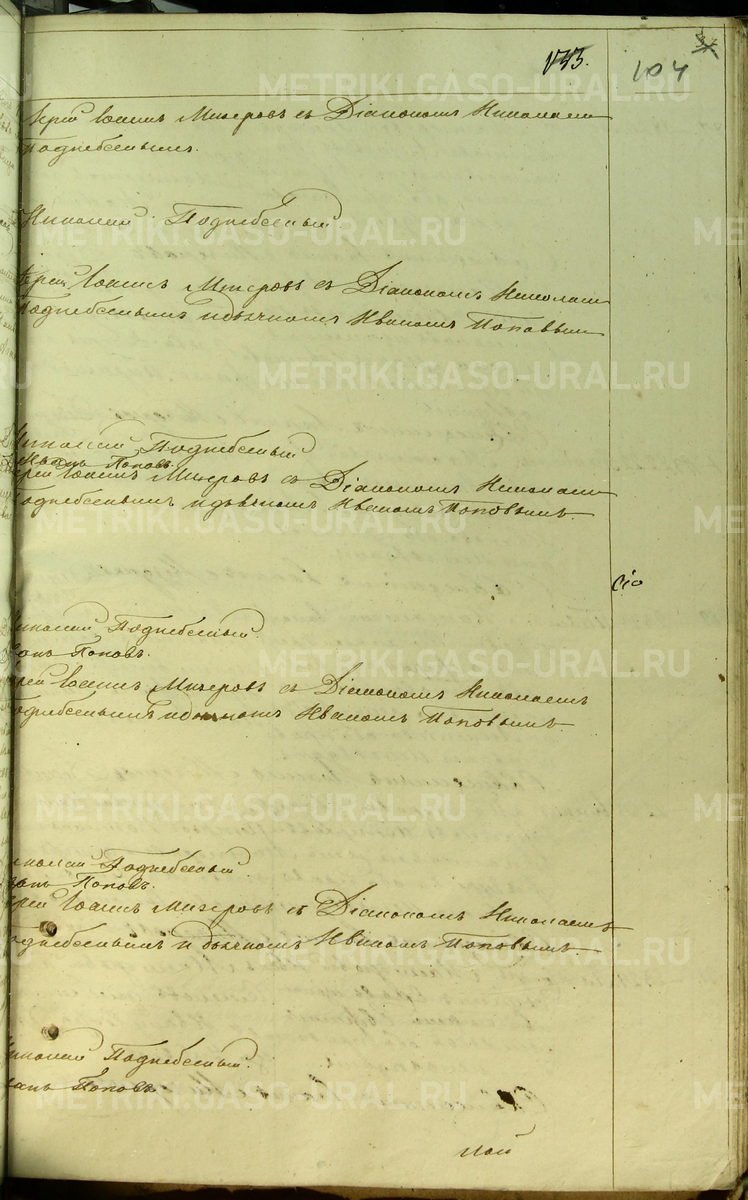 133.
104
Іерей Іоаннъ Мизеровъ съ Діакономъ Николаемъ
Поднебеснымъ.
Николай Поднебесный
Іерей Іоаннъ Мизеровъ съ Діакономъ Николаемъ
Поднебеснымъ и дьячкомъ Иваномъ Поповымъ
Николай Поднебесный
Иванъ Поповъ
Іерей Іоаннъ Мизеровъ съ Діакономъ Николаемъ
Поднебеснымъ и дьячкомъ Иваномъ Поповымъ.
Николай Поднебесный.
Иванъ Поповъ.
Іерей Іоаннъ Мизеровъ съ Діакономъ Николаемъ
Поднебеснымъ и дьячкомъ Иваномъ Поповымъ
Николай Поднебесный.
Иванъ Поповъ.
Іерей Іоаннъ Мизеровъ съ Діакономъ Николаемъ
Поднебеснымъ и дьячкомъ Иваномъ Поповымъ.
Николай Поднебесный.
Иванъ Поповъ
METRIKI.GASO-URAL.RU